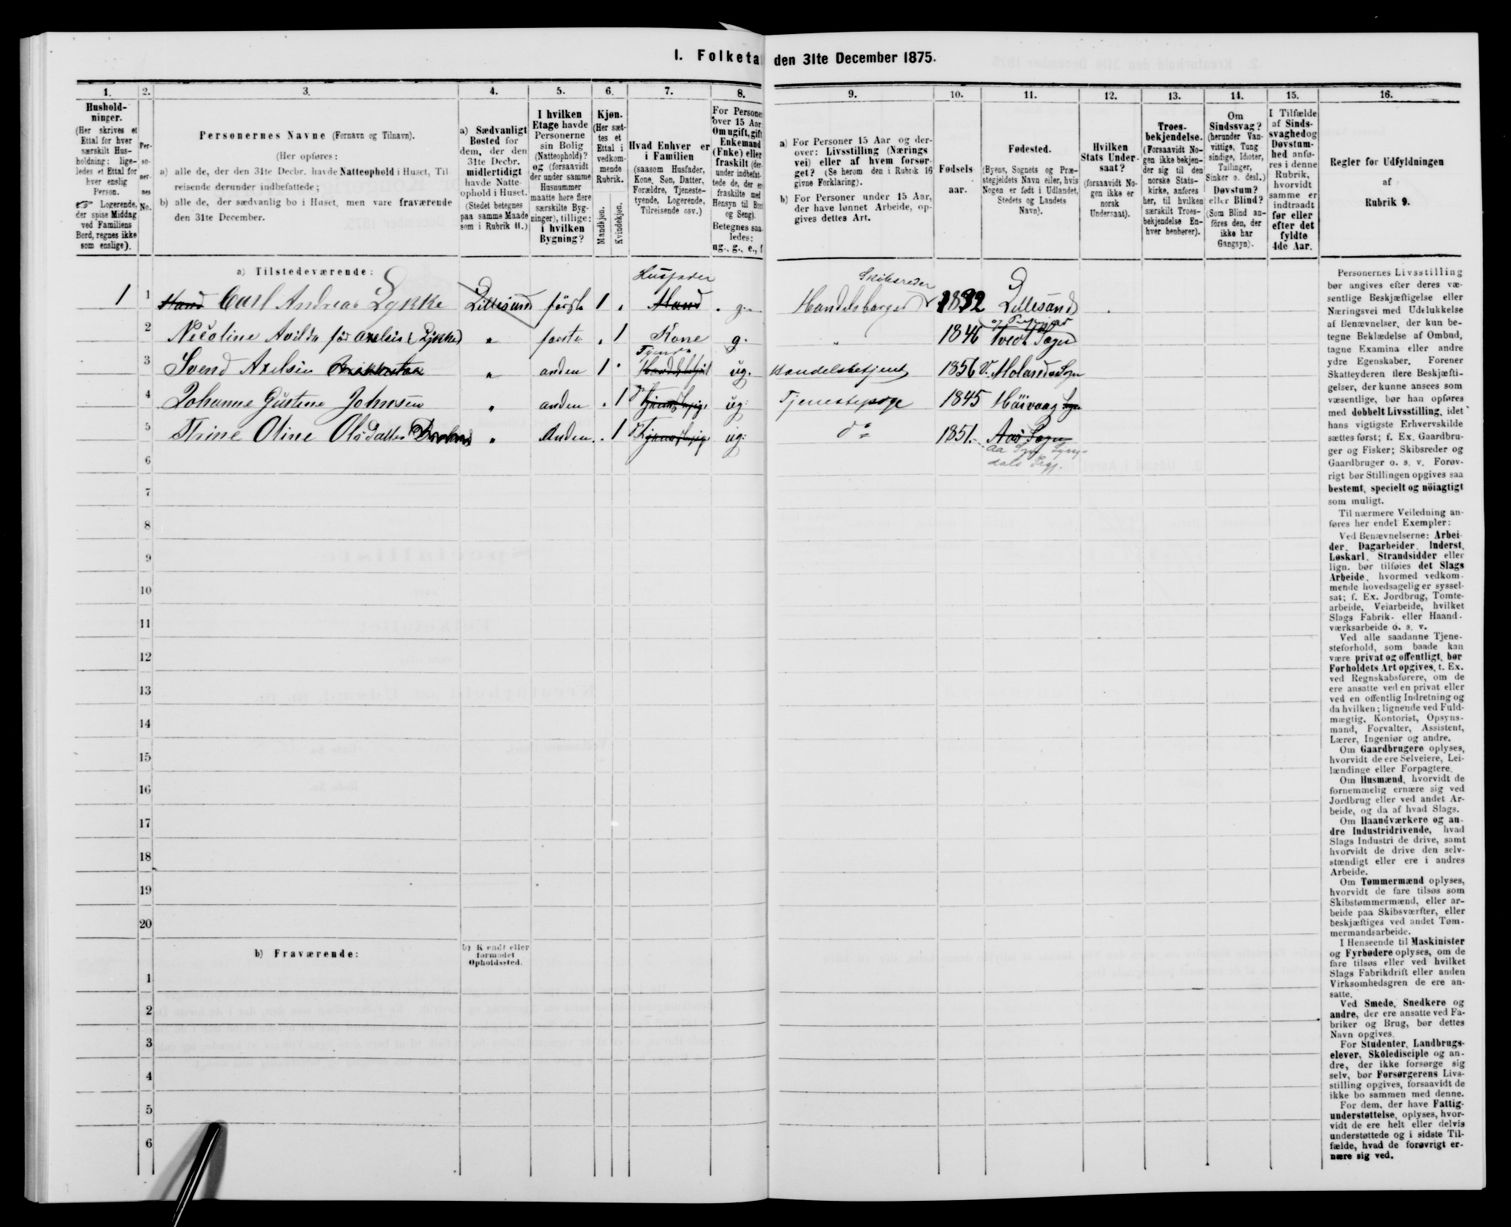 I. Folketa den 31te December 1875.
1. 2. 3. 4. 5. 6. 7. 8. 9. 10. 11. 12. 13. 14. 15. 16.
Hushold-
ninger.
(Her skrives et
Ettal for hver
særskilt Hus-
holdning; lige-
ledes et Ettal for
hver enslig
Person.
Logerende,
der spise Middag
ved Familiens
Bord, regnes ikke
som enslige).
Per-
so-
ner-
nes
No.
Personernes Navne (Fornavn og Tilnavn).
(Her opføres:
a) alle de, der den 31te Decbr. havde Natteophold i Huset, Til
reisende derunder indbefattede;
b) alle de, der sædvanlig bo i Huset, men vare fraværende
den 31te December.
a) Sædvanligt
Bosted for
dem, der den
31te Decbr.
midlertidigt
havde Natte-
ophold i Huset.
(Stedet betegnes
paa samme Maade
som i Rubrik 11.)
I hvilken
Etage havde
Personerne
sin Bolig
(Natteophold)?
og (forsaavidt
der under samme
Husnummer
maatte høre flere
særskilte Byg-
ninger), tillige:
i hvilken
Bygning?
Kjøn.
(Her sæt-
tes et
Ettal i
vedkom-
mende
Rubrik.
Mandkjøn.
Kvindekjøn.
Hvad Enhver er
i Familien
(saasom Husfader,
Kone, Søn, Datter,
Forældre, Tjeneste-
tyende, Logerende,
Tilreisende osv.)
For Persone
over 15 Aar
Om ugift, gift
Enkemand
(Enke) eller
fraskilt (de
under indbefat-
tede de, der e
fraskilte med
Hensyn til Bo
og Seng).
Betegnes saa
ledes:
ug., g., e., f
a) For Personer 15 Aar og der-
over: Livsstilling (Nærings
vei) eller af hvem forsør-
get? (Se herom den i Rubrik 16
givne Forklaring).
b) For Personer under 15 Aar,
der have lønnet Arbeide, op-
gives dettes Art.
Fødsels
aar.
Fødested.
(Byens, Sognets og Præ-
stegjeldets Navn eller, hvis
Nogen er født i Udlandet,
Stedets og Landets
Navn).
Hvilken
Stats Under-
saat?
(forsaavidt No-
gen ikke er
norsk
Undersaat).
Troes-
bekjendelse.
(Forsaavidt No-
gen ikke bekjen-
der sig til den
norske Stats-
kirke, anføres
her, til hvilken
særskilt Troes-
bekjendelse En-
hver henhører).
Om
Sindssvag?
(herunder Van-
vittige, Tung
sindige, Idioter,
Tullinger,
Sinker o. desl.)
Døvstum?
eller Blind?
(Som Blind an-
føres den, der
ikke har
Gangsyn).
I Tilfælde
af Sinds-
svaghed og
Døvstum-
hed anfø-
res i denne
Rubrik,
hvorvidt
samme er
indtraadt
før eller
efter det
fyldte
4de Aar.
Regler for Udfyldningen
af
Rubrik 9.
a) Tilstedeværende:
1 1 Mand Carl Andreas Lykke Lillesand første 1 Husfader Mand g. Handelsborger Skibsreder 1832 Lillesand
2 Nicoline Avilda før Axelsen Lykke første 1 Kone g. 1846 Tvedt Sogn
3 Svend Axelsen anden 1 Tyende ug. Handelsbetjent 1856 V. Moland Sogn
4 Johanne Gustine Johnsen anden 1 ug. Tjenestepige 1845 Høivaag Sogn
5 Thine Oline Olsdatter anden 1 ug. do 1851 Aas Sogn
6
7
8
9
10
11
12
13
14
15
16
17
18
19
20
b) Fraværende:
b) Kjendt eller
formodet
Opholdssted.
1
2
3
4
5
6
Personernes Livsstilling
bør angives efter deres væ-
sentlige Beskjæftigelse eller
Næringsvei med Udelukkelse
af Benævnelser, der kun be-
tegne Beklædelse af Ombud,
tagne Examina eller andre
ydre Egenskaber. Forener
Skatteyderen flere Beskjæfti-
gelser, der kunne ansees som
væsentlige, bør han opføres
med dobbelt Livsstilling, idet
hans vigtigste Erhvervskilde
sættes først; f. Ex. Gaardbru-
ger og Fisker; Skibsreder og
Gaardbruger o. s. v. Forøv-
rigt bør Stillingen opgives saa
bestemt, specielt og nöiagtigt
som muligt.
Til nærmere Veiledning an-
føres her endel Exempler:
Ved Benævnelserne: Arbei-
der, Dagarbeider, Inderst,
Løskarl, Strandsidder eller
lign. bør tilføies det Slags
Arbeide, hvormed vedkom-
mende hovedsagelig er syssel-
sat; f. Ex. Jordbrug, Tomte-
arbeide, Veiarbeide, hvilket
Slags Fabrik- eller Haand-
værksarbeide o. s. v.
Ved alle saadanne Tjene-
steforhold, som baade kan
være privat og offentligt, bør
Forholdets Art opgives, t. Ex.
ved Regnskabsførere, om de
ere ansatte ved en privat eller
ved en offentlig Indretning og
da hvilken; lignende ved Fuld-
mægtig, Kontorist, Opsyns-
mand, Forvalter, Assistent,
Lærer, Ingeniør og andre.
Om Gaardbrugere oplyses,
hvorvidt de ere Selveiere, Lei-
lændinge eller Forpagtere.
Om Husmænd, hvorvidt de
fornemmelig ernære sig ved
Jordbrug eller ved andet Ar-
beide, og da af hvad Slags.
Om Haandværkere og an-
dre Industridrivende, hvad
Slags Industri de drive, samt
hvorvidt de drive den selv-
stændigt eller ere i andres
Arbeide.
Om Tømmermænd oplyses,
hvorvidt de fare tilsøs som
Skibstømmermænd, eller ar-
beide paa Skibsværfter, eller
beskjæftiges ved andet Tøm-
mermandsarbeide.
I Henseende til Maskinister
og Fyrbødere oplyses, om de
fare tilsøs eller ved hvilket
Slags Fabrikdrift eller anden
Virksomhedsgren de ere an-
satte.
Ved Smede, Snedkere og
andre, der ere ansatte ved Fa-
briker og Brug, bør dettes
Navn opgives.
For Studenter, Landbrugs-
elever, Skoledisciple og an-
dre, der ikke forsørge sig
selv, bør Forsørgerens Livs-
stilling opgives, forsaavidt de
ikke bo sammen med denne.
For dem, der have Fattig-
understøttelse, oplyses, hvor-
vidt de ere helt eller delvis
understøttede og i sidste Til-
fælde, hvad de forøvrigt er-
nære sig ved.